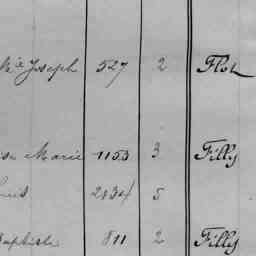 Joseph 527 2 Flot
Marie 1153 3 Filly
2834 5
Baptiste 811 2 Filly